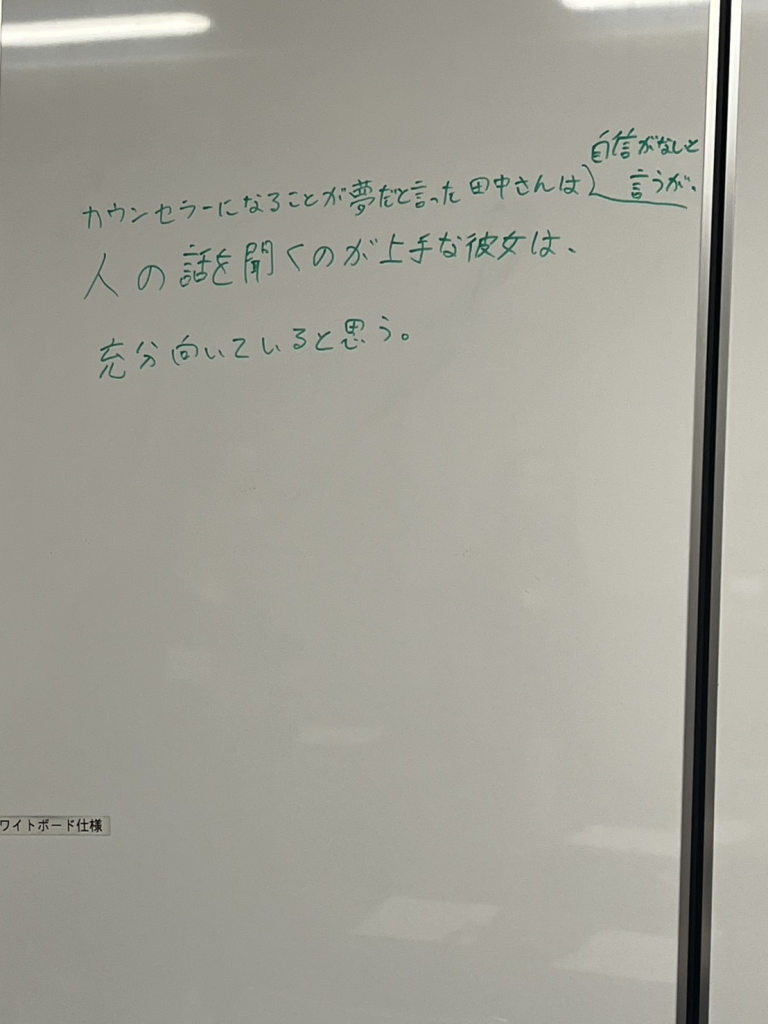 自信がないと
カウンセラーになることが夢だと言った田中さんは 言うが、
人の話を聞くのが上手な彼女は、
充分向いていると思う。
ワイトボード仕様